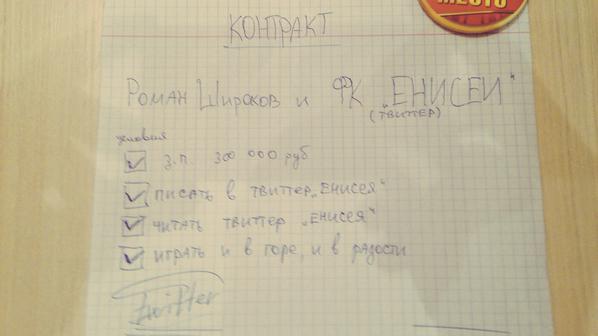 МЕСТО
КОНТРАКТ
РОМАН ШИРОКОВ И ФК „ЕНИСЕЙ"
(ТВИТТЕР)
условия
З.П. 300 000 руб
ПИСАТЬ В ТВИТТЕР „ЕНИСЕЯ"
ЧИТАТЬ ТВИТТЕР „ЕНИСЕЯ"
ИГРАТЬ И В ГОРЕ, И В РАДОСТИ
Twitter